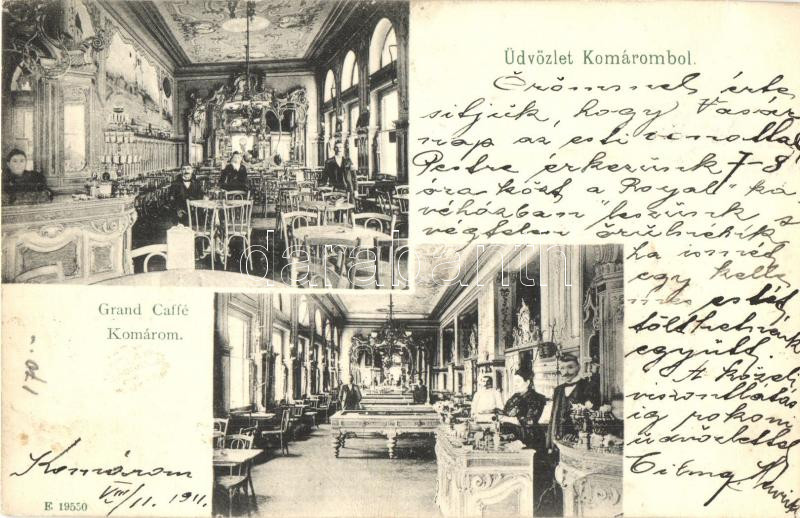 Üdvözlet Komárombol.
Örömmel érte
sitjük, hogy Vasár
nap az esti vonattal
Pestre érkezünk 7-8
óra közt a "Royal" ká
véházban leszünk s
végtelen örülnénk
ha ismét
egy kelle
mes estét
töltenénk
együtt.
A közeli
viszontlátás
ig rokon
üdvözlettel
Grand Caffé
Komárom.
Komárom
VIII/11. 1911.
E 19550
darabanth